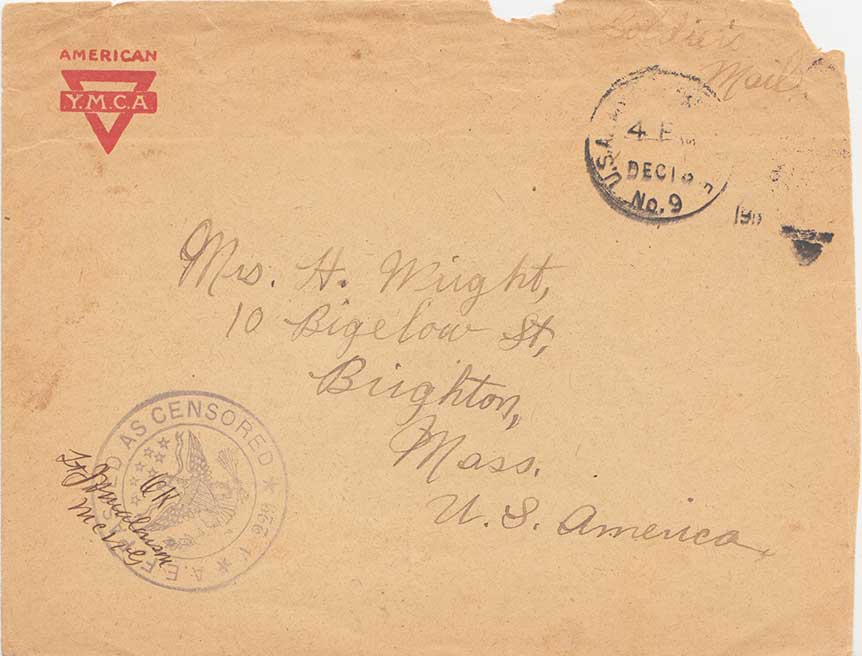 AMERICAN
Y.M.C.A
Soldier's
Mail
U.S.A.
4 P
DEC 1
No. 9
191
Mrs. H. Wright,
10 Bigelow St,
Brighton,
Mass.
U. S. America.
AS CENSORED
A.E.F.
OK
Lt